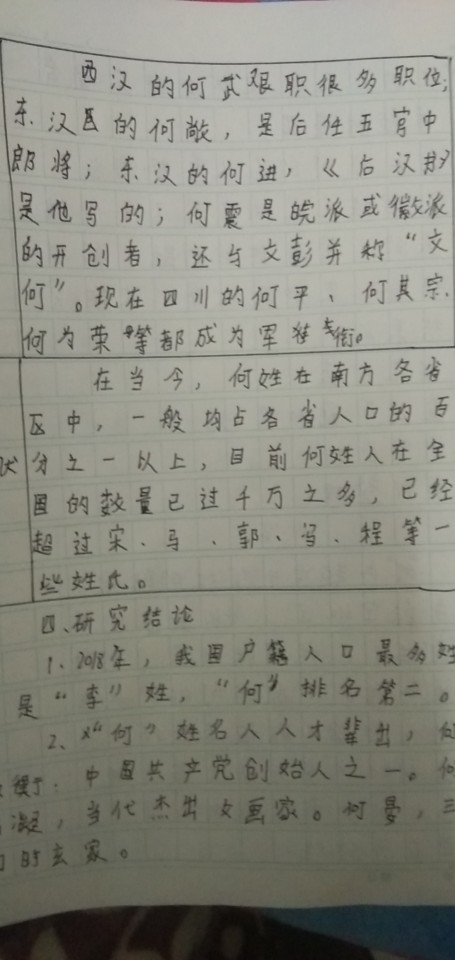 西汉的何武艰职很多职位;
东、汉区的何敞,是后任五官中
郎将;东汉的何进,《后汉书》
是他写的;何震是皖派或徽派
的开创者,还与文彭并称“文
何”。现在四川的何平、何其宗、
何为荣等都成为军衔。
在当今,何姓在南方各省
区中,一般均占各省人口的百
分之一以上,目前何姓人在全
国的数量已过千万之多,已经
超过宋、马、郭、冯、程等一
些姓氏。
四、研究结论
1、2018年,我国户籍人口最多姓
是“李”姓,“何”排名第二。
2、“何”姓名人人才辈出,何
中国共产党创始人之一。何
凝,当代杰出女画家。何晏,三
的玄家。